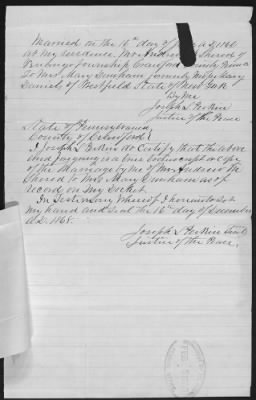 Married on the 16th day of A.D. 1860
at my residence Mr Andrew M Shered of
Township Crawford County Penna
To Mrs Mary Dunham formerly Miss Mary
Daniels of Westfield State of New York
By Me
Joseph L Perkins
Justice of the Peace
State of Pennsylvania
County of Crawford
I Joseph L Perkins do Certify that the above
and foregoing is a true transcript or copy
of the Marriage by me of Mr Andrew M
Shered to Mrs Mary Dunham as of
record on My Docket
In Testimony Whereof I hereunto set
my hand and Seal the 16th day of December
A.D. 1868.
Joseph L Perkins Seal
Justice of the Peace